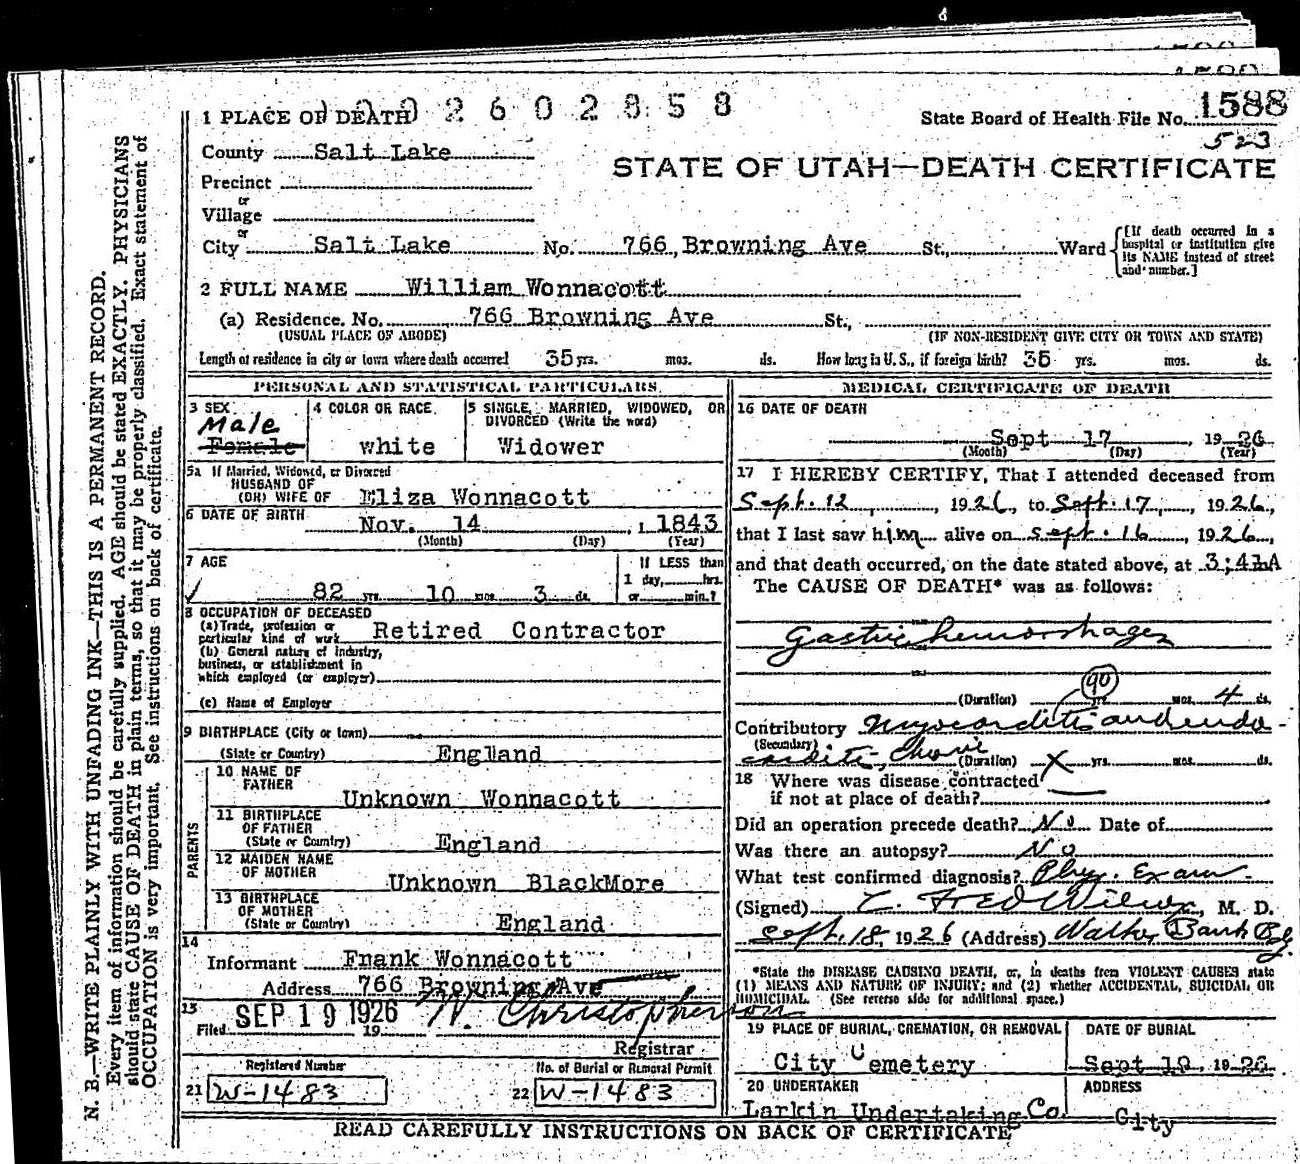 1588
1 PLACE OF DEATH 2602858 State Board of Health File No. 1588
523
County Salt Lake
STATE OF UTAH—DEATH CERTIFICATE
Precinct
or
Village
or
City Salt Lake No. 766 Browning Ave St., Ward [If death occurred in a hospital or institution give its NAME instead of street and number.]
2 FULL NAME William Wonnacott
(a) Residence. No. 766 Browning Ave St.,
(USUAL PLACE OF ABODE) (IF NON-RESIDENT GIVE CITY OR TOWN AND STATE)
Length of residence in city or town where death occurred 35 yrs. mos. ds. How long in U. S., if foreign birth? 35 yrs. mos. ds.
PERSONAL AND STATISTICAL PARTICULARS
3 SEX
Male
Female
4 COLOR OR RACE
white
5 SINGLE, MARRIED, WIDOWED, OR
DIVORCED (Write the word)
Widower
5a If Married, Widowed, or Divorced
HUSBAND OF
(OR) WIFE OF Eliza Wonnacott
6 DATE OF BIRTH
Nov. 14, 1843
(Month) (Day) (Year)
7 AGE
82 yrs 10 mos 3 ds
If LESS than
1 day, hrs.
or min.?
8 OCCUPATION OF DECEASED
(a) Trade, profession or
particular kind of work Retired Contractor
(b) General nature of industry,
business, or establishment in
which employed (or employer)
(c) Name of Employer
9 BIRTHPLACE (City or town)
(State or Country) England
PARENTS
10 NAME OF
FATHER
Unknown Wonnacott
11 BIRTHPLACE
OF FATHER
(State or Country) England
12 MAIDEN NAME
OF MOTHER
Unknown BlackMore
13 BIRTHPLACE
OF MOTHER
(State or Country) England
14
Informant Frank Wonnacott
Address 766 Browning Ave
15
Filed SEP 19 1926 19 W. Christopherson
Registrar
Registered Number No. of Burial or Removal Permit
21 W-1483 22 W-1483
MEDICAL CERTIFICATE OF DEATH
16 DATE OF DEATH
Sept 17, 1926
(Month) (Day) (Year)
17 I HEREBY CERTIFY, That I attended deceased from
Sept. 12, 1926, to Sept. 17, 1926,
that I last saw him alive on Sept. 16, 1926,
and that death occurred, on the date stated above, at
The CAUSE OF DEATH* was as follows:
Gastric hemorrhages
90
(Duration) yrs. mos. 4 ds.
Contributory Myocarditis and endo-
(Secondary)
carditis, Chronic (Duration) X yrs. mos. ds.
18 Where was disease contracted
if not at place of death?
Did an operation precede death? No Date of
Was there an autopsy? No
What test confirmed diagnosis? Phys. Exam.
(Signed) Fred M. D.
Sept. 18, 1926 (Address) Walker Bank Bdg.
*State the DISEASE CAUSING DEATH, or, in deaths from VIOLENT CAUSES state
(1) MEANS AND NATURE OF INJURY; and (2) whether ACCIDENTAL, SUICIDAL OR
HOMICIDAL. (See reverse side for additional space.)
19 PLACE OF BURIAL, CREMATION, OR REMOVAL
City Cemetery
DATE OF BURIAL
Sept 19 1926
20 UNDERTAKER
Larkin Undertaking Co.
ADDRESS
City
READ CAREFULLY INSTRUCTIONS ON BACK OF CERTIFICATE
N. B.—WRITE PLAINLY WITH UNFADING INK—THIS IS A PERMANENT RECORD.
Every item of information should be carefully supplied. AGE should be stated EXACTLY. PHYSICIANS
should state CAUSE OF DEATH in plain terms, so that it may be properly classified. Exact statement of
OCCUPATION is very important. See instructions on back of certificate.